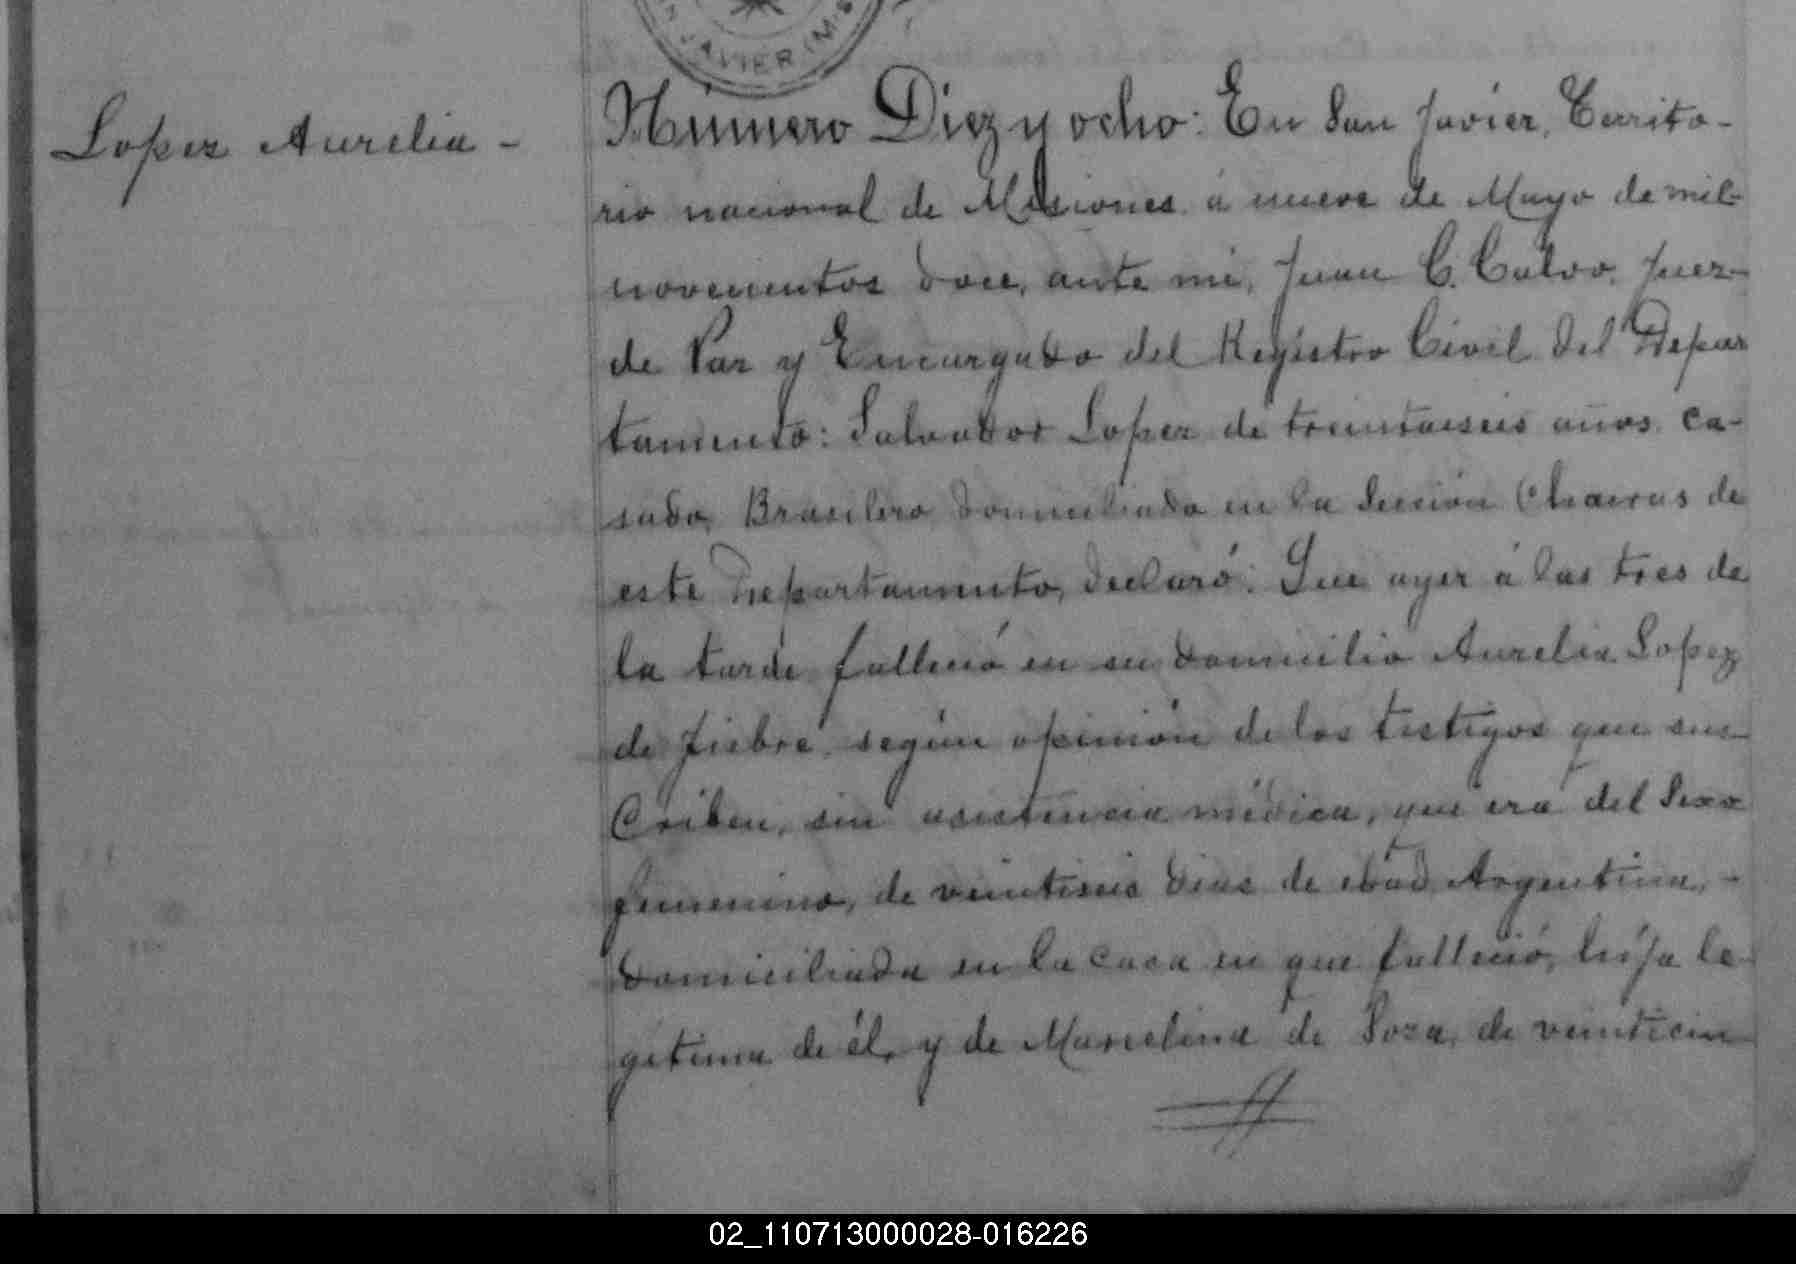 N JAVIER (MS
Lopez Aurelia -
Número Diez y ocho: En San Javier, Territo-
rio nacional de Misiones á nueve de Mayo de mil
novecientos doce, ante mi, Juan C. Calvo, Juez
de Paz y Encargado del Registro Civil del Depar
tamento: Salvador Lopez de treintaiseis años, ca-
sado, Brasilero, domiciliado en la Seccion Chacras de
este Departamento, declaró: Que ayer á las tres de
la tarde falleció en su domicilio Aurelia Lopez
de fiebre, según opinión de los testigos que sus-
criben, sin asistencia médica, que era del Sexo
femenino, de veintiseis dias de edad, Argentina, -
domiciliada en la casa en que falleció, hija le-
gitima de él, y de Marcelina de Soza, de veinticin
02_110713000028-016226